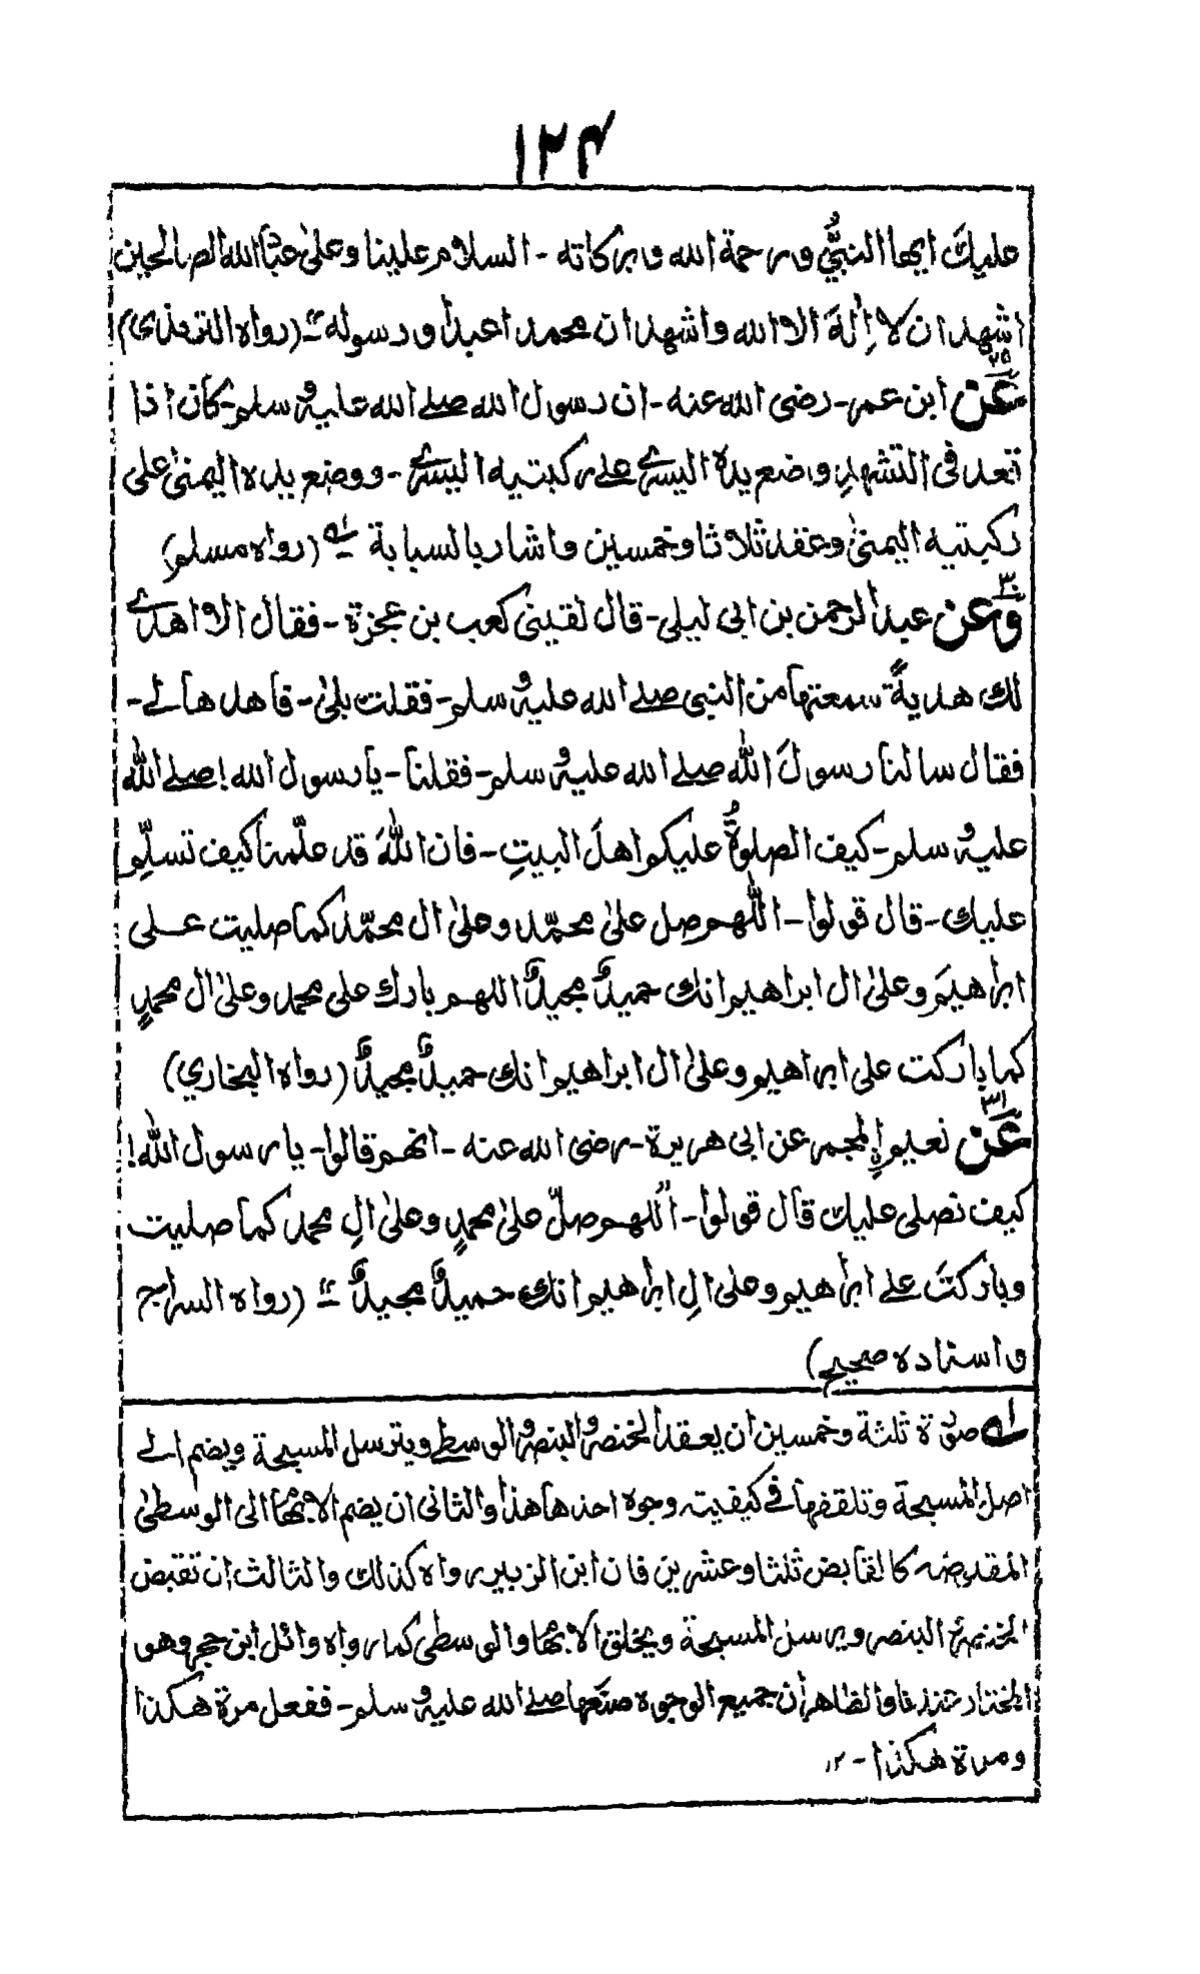 ١٢٤
عليك ايها النبيُّ ورحمة الله وبركاته - السلام علينا وعلىٰ عباد الله الصالحين
اشهد ان لا اِلٰهَ الا الله واشهد ان محمدا عبدهٗ ورسوله ؎ (رواه الترمذى)
٢٩ عَن ابن عمر - رضى الله عنه - ان رسول الله صلے الله عليه وسلم - كان اذا
قعد فى التشهدِ وضع يدہ اليسرےٰ علے ركبتيه اليسرےٰ - ووضع يده اليمنىٰ على
ركبتيه اليمنىٰ وعقد ثلاثا وخمسين واشار بالسبابة ؎١ (رواه مسلم)
٣٠ وَعَن عبد الرحمن بن ابى ليلى - قال لقينى كعب بن عجزة - فقال الا اهدے
لك هديةً سمعتها من النبى صلے الله عليه وسلم - فقلت بلىٰ - فاهدها لے -
فقال سالنا رسولَ اللّٰه صلے الله عليه وسلم - فقلنا - يا رسول الله! صلے اللّٰه
عليه وسلم - كيف الصلوةُ عليكم اهلَ البيتِ - فان اللّٰهَ قد علّمنا كيف نسلِّم
عليك - قال قولوا - اللّٰهم صل علىٰ محمّد وعلىٰ ال محمّد كما صليت عــلى
ابراهيمَ وعلىٰ ال ابراهيم انك حميدٌ مجيدٌ اللهم بارك على محمد وعلىٰ ال محمدٍ
كما باركت على ابراهيم وعلىٰ ال ابراهيم انك حميدٌ مجيدٌ (رواه البخاري)
٣١ عَن نعيم اِلمجمر عن ابى هريرة - رضى الله عنه - انهم قالوا - يا رسول اللّٰه!
كيف نصلى عليك قال قولوا - اَللهم صلّ علىٰ محمدٍ وعلىٰ الِ محمد كما صليت
وباركتَ علے ابراهيم وعلى الِ ابراهيم انك حميدٌ مجيدٌ ؎ (رواه السراج
واسناده صحيح)
؎١ صورة ثلثة وخمسين ان يعقد الخنصر والبنصر والوسطے ويترسل المسبحة ويضم الے
اصل المسبحة وتلقفها فے كيفيته وجوه احدها هذا والثانى ان يضم الابهام الى الوسطىٰ
المقبوضه كالقابض ثلثا وعشرين فان ابن الزبير رواه كذلك والثالث ان تقبض
الخنصر البنصر ويرسل المسبحة ويخلق الابهام والوسطىٰ كما رواه وائل ابن حجر وهو
المختار عندنا والظاهر ان جميع الوجوه صنعها صلے الله عليه وسلم - ففعل مرة هكذا
ومرة هكذا - ١٢